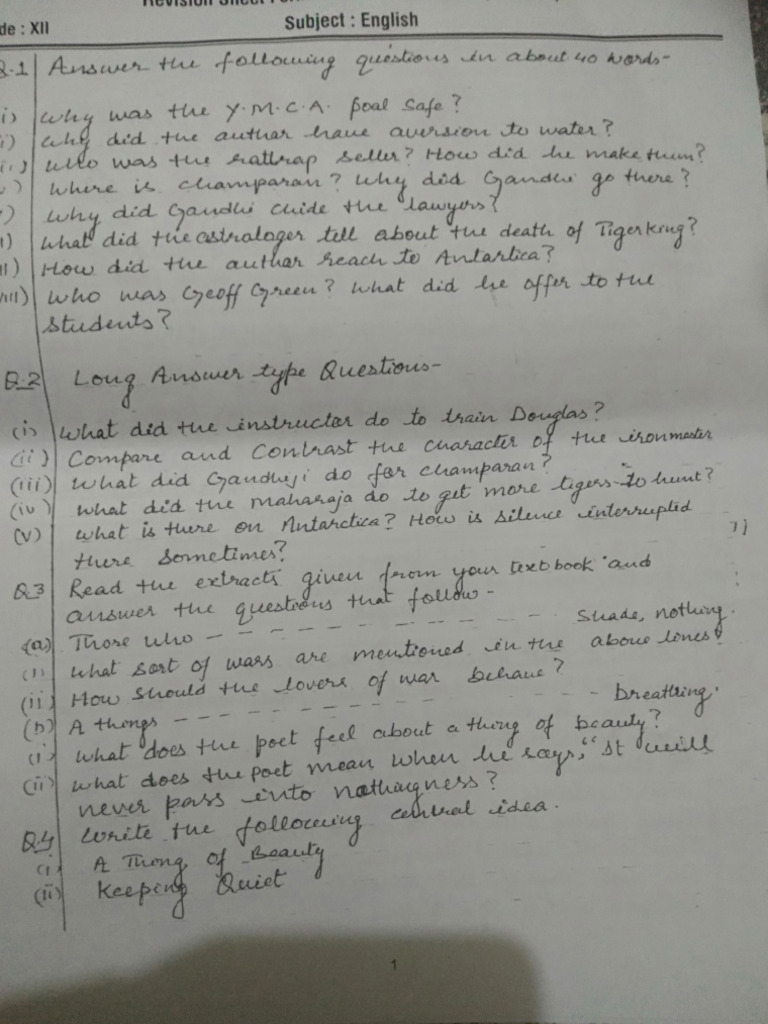 de : XII
Subject : English
Q.1 Answer the following questions in about 40 words-
i) Why was the Y.M.C.A. poal safe?
i) Why did the author have aversion to water?
ii) Who was the rattrap seller? How did he make them?
) Where is champaran? Why did Gandhi go there?
) Why did Gandhi chide the lawyers?
i) What did the astrologer tell about the death of Tigerking?
ii) How did the author reach to Antartica?
viii) Who was Geoff Green? What did he offer to the
students?
Q.2 Long Answer type Questions-
(i) What did the instructor do to train Douglas?
(ii) Compare and Contrast the character of the ironmaster
(iii) What did Gandhiji do for champaran?
(iv) What did the maharaja do to get more tigers to hunt?
(v) What is there on Antarctica? How is silence interrupted
there sometimes?
Q.3 Read the extracts given from your textbook and
answer the questions that follow-
(a) Those who - - - - - - - - - - - - - - Shade, nothing.
(i) What sort of wars are mentioned in the above lines?
(ii) How should the lovers of war behave?
(b) A things - - - - - - - - - - - - - - - - breathing.
(i) What does the poet feel about a thing of beauty?
(ii) What does the poet mean when he says, "It will
never pass into nothingness?
Q.4 Write the following central idea.
(i) A Thing of Beauty
(ii) Keeping Quiet
1